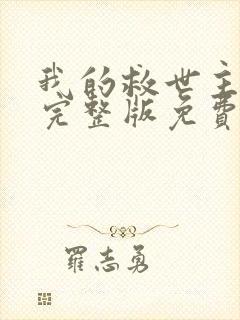 我的救世主
完整版免費
羅志勇